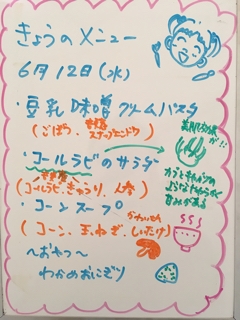 きょうのメニュー
6月12日(水)
・豆乳味噌クリームパスタ
(ごぼう、
スナップエンドウ)
美肌効果
が!!
・コールラビのサラダ
(コールラビ、きゅうり、人参)
カブとキャベツの
ような
甘みがある
・コーンスープ
(コーン、玉ねぎ、しいたけ)
〜おやつ〜
わかめおにぎり